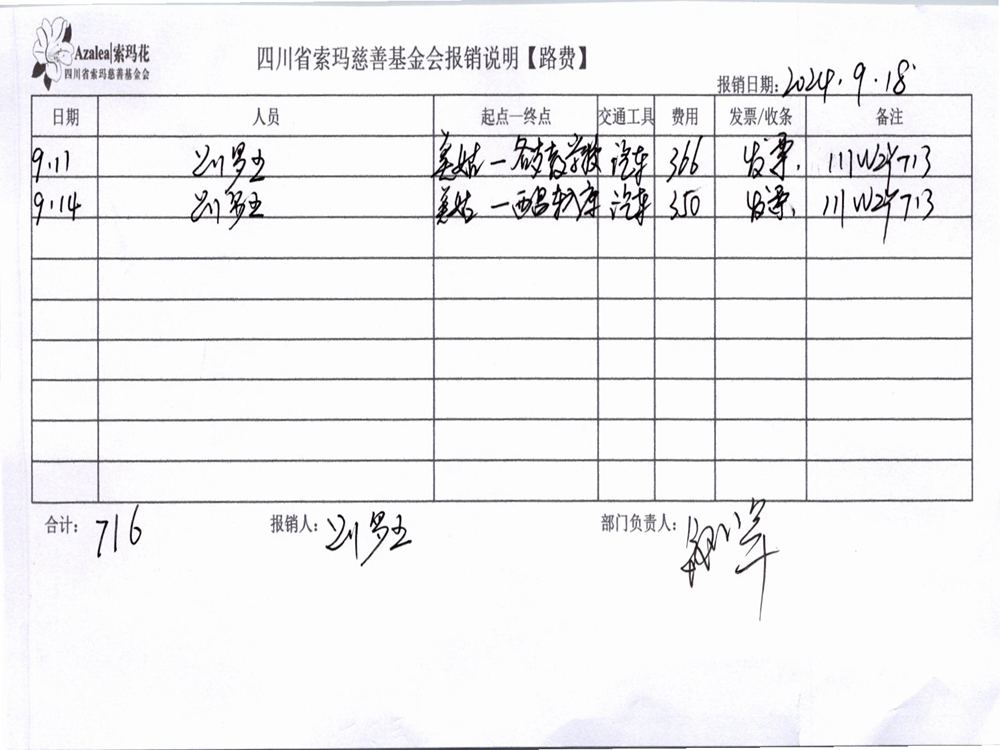 Azalea|索玛花
四川省索玛慈善基金会
四川省索玛慈善基金会报销说明【路费】
报销日期：2024.9.18
日期 人员 起点—终点 交通工具 费用 发票/收条 备注
9.11 美姑— 学校 汽车 366 发票. 川W2Y713
9.14 美姑—西昌 汽车 350 发票. 川W2Y713
合计：716 报销人： 部门负责人：